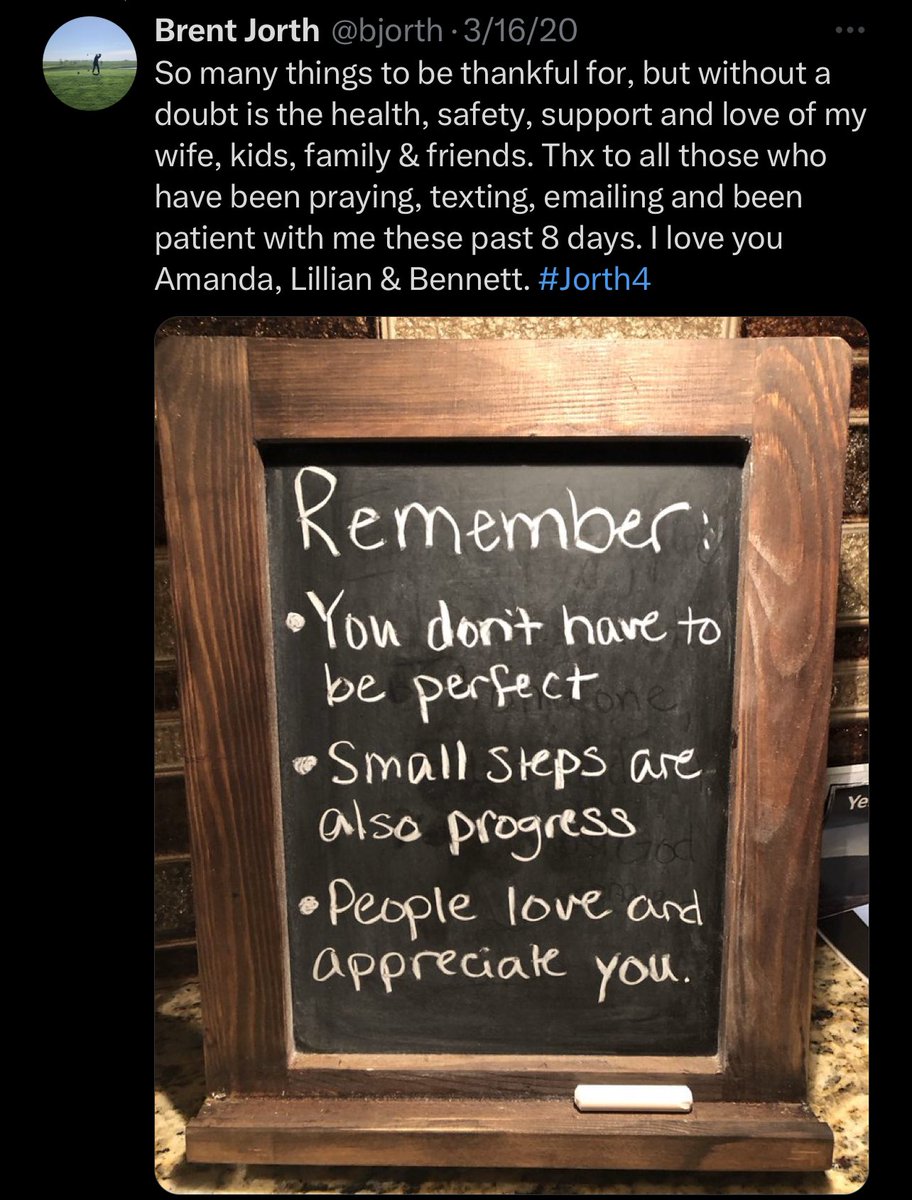 Brent Jorth @bjorth · 3/16/20
So many things to be thankful for, but without a
doubt is the health, safety, support and love of my
wife, kids, family & friends. Thx to all those who
have been praying, texting, emailing and been
patient with me these past 8 days. I love you
Amanda, Lillian & Bennett. #Jorth4
Remember:
• You don't have to
be perfect
• Small steps are
also progress
• People love and
appreciate you.